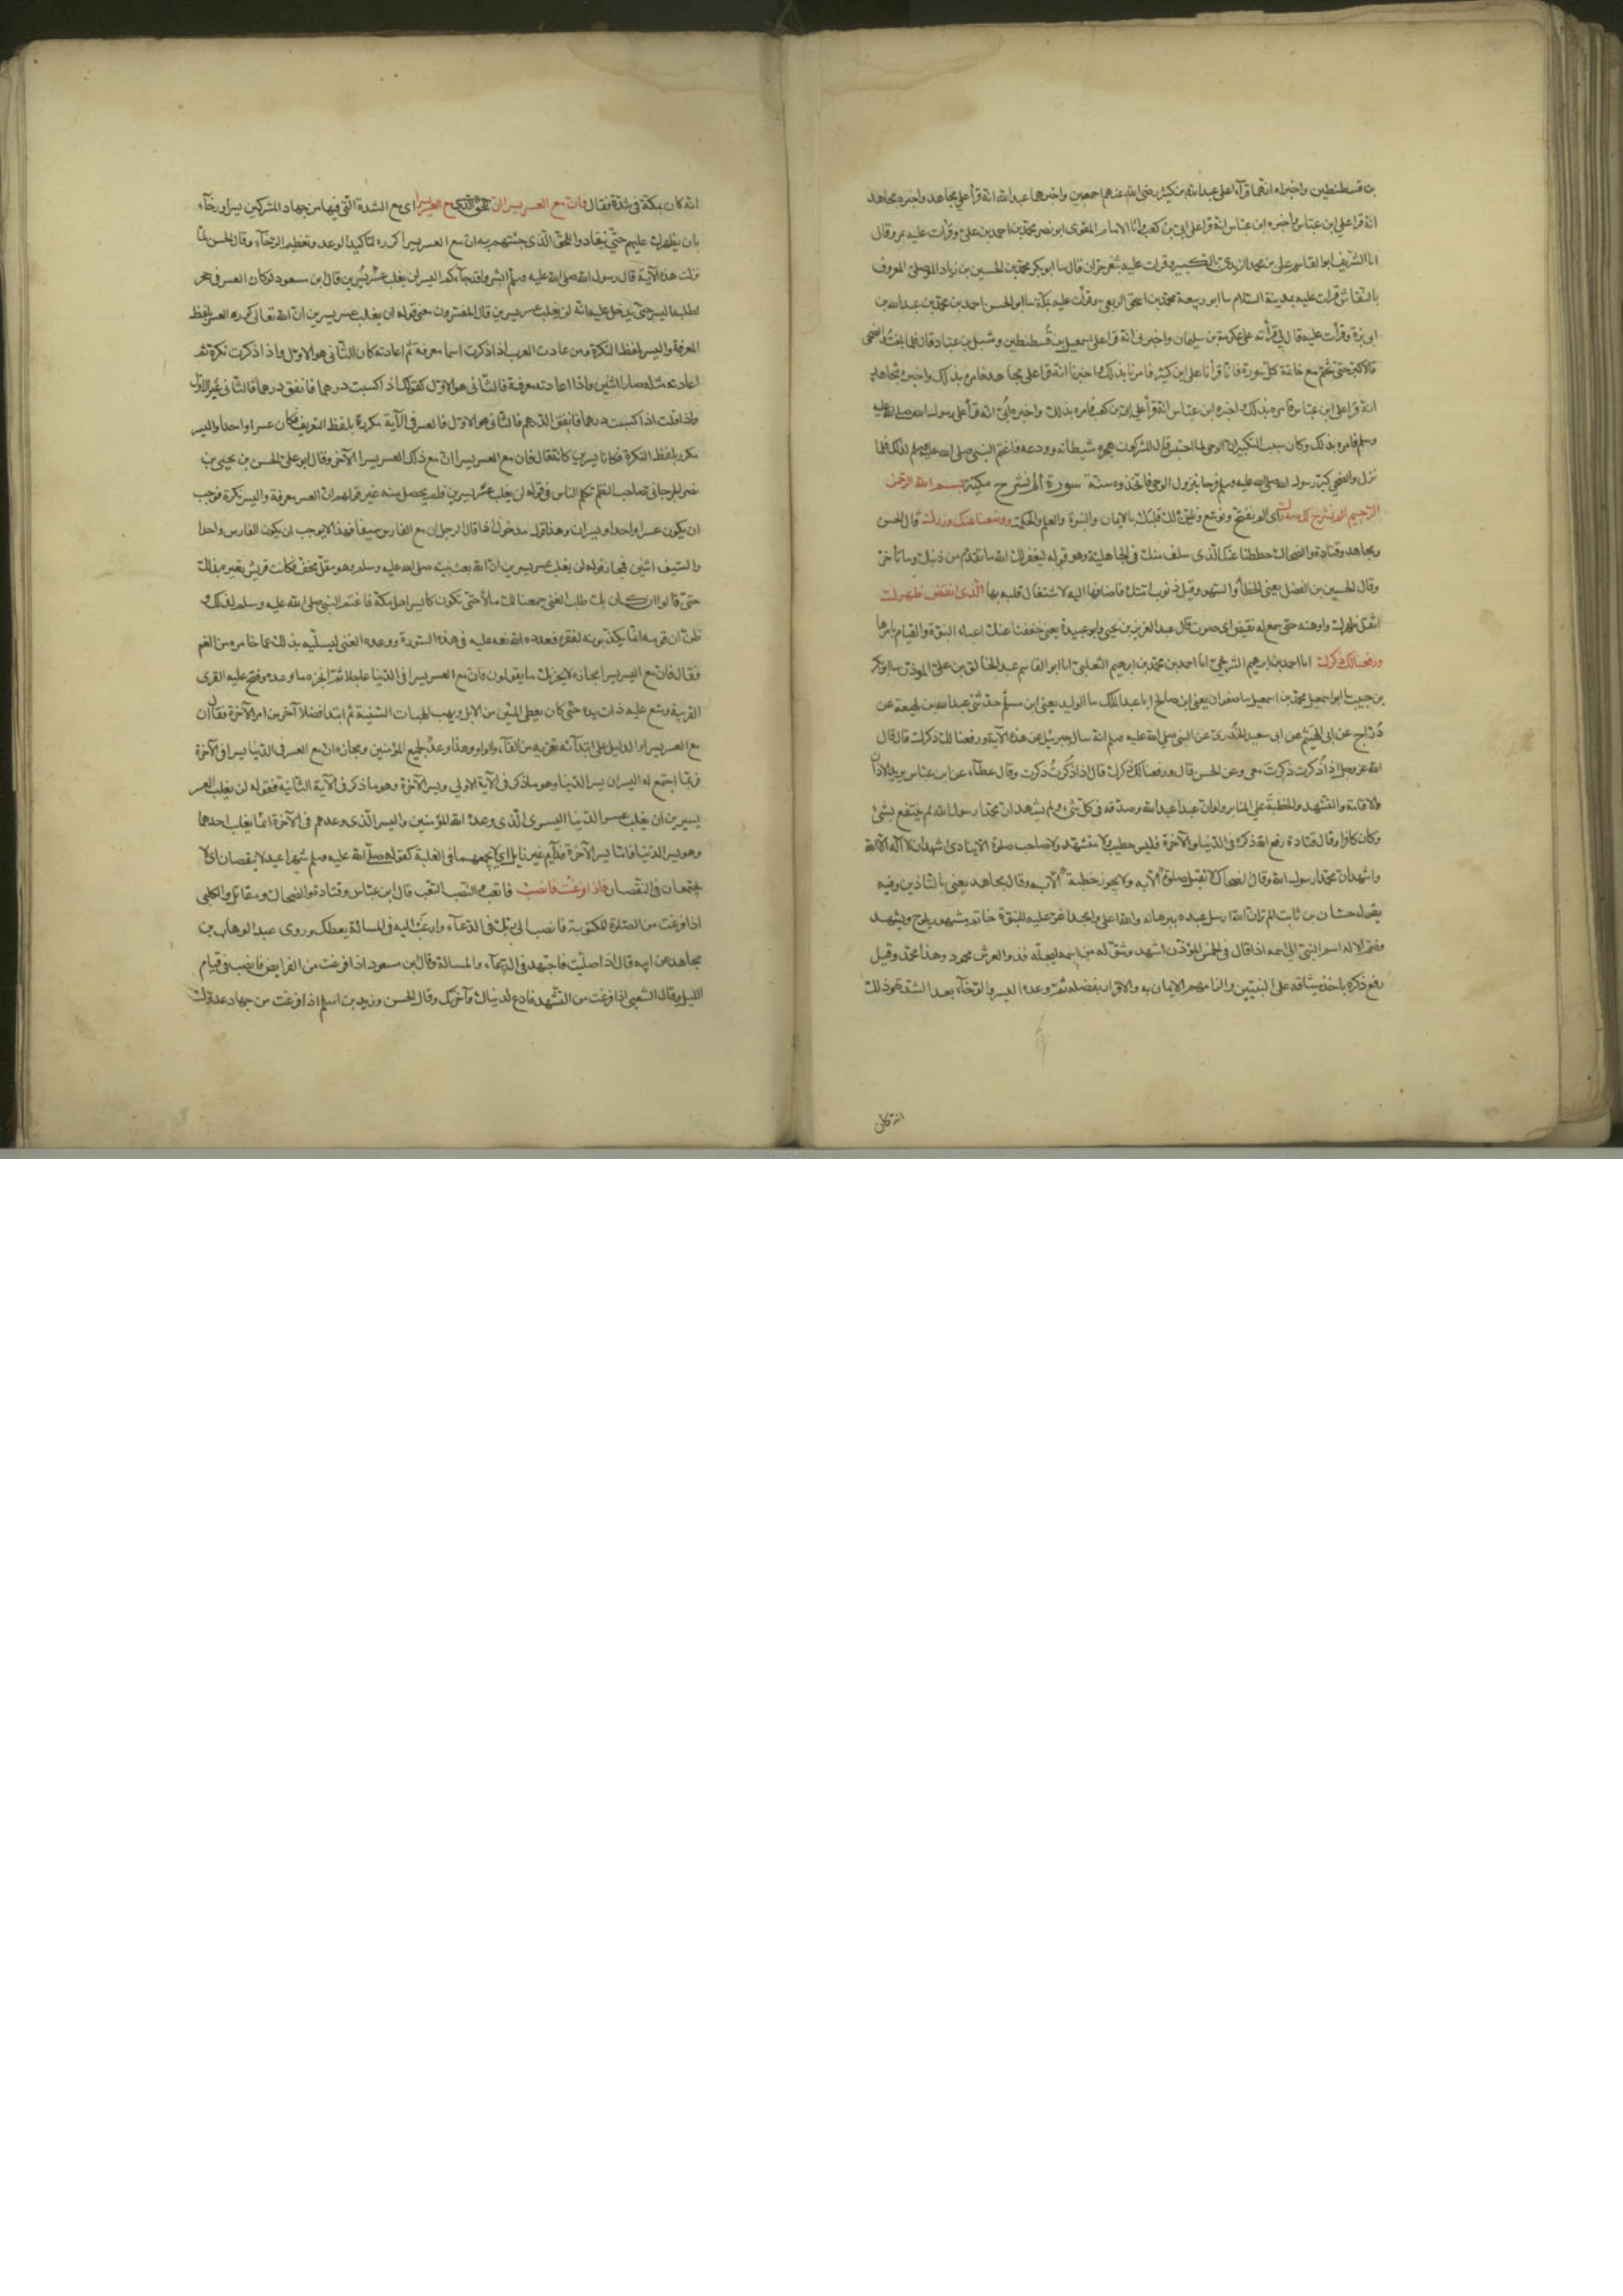 بن قسطنطين واخبراه انهما قرآ على عبد الله بن كثير رضي الله عنهم اجمعين واخبرهما عبد الله انه قرأ على مجاهد واخبره مجاهد
انه قرا على ابن عباس واخبره ابن عباس انه قرا على ابي بن كعب وانا الامام المقرى ابو نصر محمد بن احمد بن علي وقرأت عليه بمرو قال
انا الشريف ابو القاسم على بن محمد الزيدي وقرات عليه بثغر حران قال سا ابو بكر محمد بن الحسين بن زياد الموصلي المعروف
بالنقاش وقرات عليه بمدينة السلام سا ابو ربيعة محمد بن اسحق الربعي وقرأت عليه بمكة سا ابو الحسن احمد بن محمد بن عبد الله بن
ابى بزة وقرأت عليه قال لي قرأت على عكرمة بن سليمان واخبرنى انه قرا على اسمعيل بن قسطنطين وشبل بن عباد قال فلما بلغت والضحى
قالا كبر حتى تختم مع خاتمة كل سورة فانا قرأنا على ابن كثير فامرنا بذلك واخبرنا انه قرا على مجاهد فامره بذلك واخبره مجاهد
انه قرا على ابن عباس فامره بذلك واخبره ابن عباس انه قرأ على ابى بن كعب فامره بذلك واخبره ابي انه قرأ على رسول الله صلى الله عليه
وسلم فامره بذلك وكان سبب التكبير ان الوحي لما احتبس قال المشركون هجره شيطانه وودعه فاغتم النبي صلى الله عليه وسلم لذلك فلما
نزل والضحى كبر رسول الله صلى الله عليه وسلم فرحا بنزول الوحى فاتخذوه سنة سورة الم نشرح مكية بسم الله الرحمن
الرحيم الم نشرح لك صدرك اى الم نفتح ونوسع ونلين لك قلبك بالايمان والنبوة والعلم والحكمة ووضعنا عنك وزرك قال الحسن
ومجاهد وقتادة والضحاك حططنا عنك الذى سلف منك فى الجاهلية وهو قوله ليغفر لك الله ما تقدم من ذنبك وما تأخر
وقال الحسين بن الفضل يعنى الخطأ والسهو وقيل ذنوب امتك فاضافها اليه لاشتغال قلبه بها الذى انقض ظهرك
اثقل ظهرك واوهنه حتى سمع له نقيض اى صوت قال عبد العزيز بن يحيى وابو عبيدة يعنى خففنا عنك اعباء النبوة والقيام بامرها
ورفعنا لك ذكرك انا احمد بن ابرهيم الشريحي انا احمد بن محمد بن ابرهيم الثعلبى انا ابو القاسم عبد الخالق بن على المؤذن سا ابو بكر
بن حبيب سا ابو اسمعيل محمد بن اسمعيل سا صفوان يعنى ابن صالح ابا عبد الملك سا الوليد يعنى ابن مسلم حدثنى عبد الله بن لهيعة عن
دراج عن ابى الهيثم عن ابى سعيد الخدرى عن النبى صلى الله عليه وسلم انه سال جبرئيل عن هذه الآية ورفعنا لك ذكرك قال قال
الله عز وجل اذا ذكرت ذكرت معى وعن الحسن قال ورفعنا لك ذكرك قال اذا ذكرت ذكرت وقال عطاء عن ابن عباس يريد الاذان
والاقامة والتشهد والخطبة على المنابر ولو ان عبدا عبد الله وصدقه فى كل شئ ولم يشهد ان محمدا رسول الله لم ينتفع بشئ
وكان كافرا وقال قتادة رفع الله ذكره فى الدنيا والآخرة فليس خطيب ولا متشهد ولا صاحب صلوة الا ينادى اشهد ان لا اله الا الله
واشهد ان محمدا رسول الله وقال الضحاك لا تقبل صلوة الا به ولا يجوز خطبة الا به وقال مجاهد يعنى بالتاذين وفيه
يقول حسان بن ثابت الم تر ان الله ارسل عبده ببرهانه والله اعلى وامجد اغر عليه للنبوة خاتم مشهود يلوح ويشهد
وضم الاله اسم النبى الى اسمه اذا قال فى الخمس المؤذن اشهد وشق له من اسمه ليجله فذو العرش محمود وهذا محمد وقيل
رفع ذكره باخذ ميثاقه على النبيين والزامهم الايمان به والاقرار بفضله ثم وعده اليسر والرخاء بعد الشدة وذلك
انه كان
انه كان بمكة فى شدة فقال فان مع العسر يسرا ان مع العسر يسرا اى مع الشدة التى فيها من جهاد المشركين يسرا ورخاء
بان يظهرك عليهم حتى ينقادوا للحق الذى جئتهم به ان مع العسر يسرا كرره لتاكيد الوعد وتعظيم الرخاء وقال الحسن لما
نزلت هذه الآية قال رسول الله صلى الله عليه وسلم ابشروا قد جاءكم اليسر لن يغلب عسر يسرين قال ابن مسعود لو كان العسر فى جحر
لطلبه اليسر حتى يدخل عليه انه لن يغلب عسر يسرين قال المفسرون معنى قوله لن يغلب عسر يسرين ان الله تعالى كرر العسر بلفظ
المعرفة واليسر بلفظ النكرة ومن عادت العرب اذا ذكرت اسما معرفة ثم اعادته كان الثانى هو الاول واذا ذكرت نكرة ثم
اعادته مثله صار اثنين واذا اعادته معرفة فالثانى هو الاول كقولك اذا كسبت درهما فانفق درهما فالثانى غير الاول
واذا قلت اذا كسبت درهما فانفق الدرهم فالثانى هو الاول فالعسر فى الآية مكررة بلفظ التعريف فكان عسرا واحدا واليسر
مكرر بلفظ النكرة فكانا يسرين كانه قال فان مع العسر يسرا ان مع ذلك العسر يسرا الآخر وقال ابو على الحسن بن يحيى بن
نصر الجرجانى صاحب النظم تكلم الناس فى قوله لن يغلب عسر يسرين فلم يحصل منه غير قولهم ان العسر معرفة واليسر نكرة فوجب
ان يكون عسرا واحدا ويسران وهذا قول مدخول اذا قال الرجل ان مع الفارس سيفا فهذا لا يوجب ان يكون الفارس واحدا
والسيف اثنين فمجاز قوله لن يغلب عسر يسرين ان الله بعث نبيه صلى الله عليه وسلم وهو مقل مخف فكانت قريش تعيره بذلك
حتى قالوا ان كان بك طلب الغنى جمعنا لك مالا حتى تكون كايسر اهل مكة فاغتم النبى صلى الله عليه وسلم لذلك
فظن ان قومه انما يكذبونه لفقره فعدد الله نعمه عليه فى هذه السورة ووعده الغنى ليسليه بذلك عما خامره من الغم
فقال فان مع العسر يسرا مجازه لا يحزنك ما يقولون فان مع العسر يسرا فى الدنيا عاجلا ثم انجزه ما وعده وفتح عليه القرى
القريبة ووسع عليه ذات يده حتى كان يعطى المئين من الابل ويهب الهبات السنية ثم ابتدا فضلا آخر من امر الآخرة فقال ان
مع العسر يسرا والدليل على ابتدائه تعريه من الفاء والواو وهذا وعد لجميع المؤمنين ومجازه ان مع العسر فى الدنيا يسرا فى الآخرة
فربما اجتمع له اليسران يسر الدنيا وهو ما ذكر فى الآية الاولى ويسر الآخرة وهو ما ذكر فى الآية الثانية فقوله لن يغلب عسر
يسرين ان يغلب عسر الدنيا اليسر الذى وعد الله للمؤمنين واليسر الذى وعدهم فى الآخرة انما يغلب احدهما
وهو يسر الدنيا فاما يسر الآخرة فدائم غير زايل اى لا يجمعهما فى الغلبة كقوله صلى الله عليه وسلم شهرا عيد لا ينقصان اى لا
يجتمعان فى النقصان فاذا فرغت فانصب فاتعب والنصب التعب قال ابن عباس وقتادة والضحاك ومقاتل والكلبى
اذا فرغت من الصلوة المكتوبة فانصب الى ربك فى الدعاء وارغب اليه فى المسالة يعطك وروى عبد الوهاب بن
مجاهد عن ابيه قال اذا صليت فاجتهد فى الدعاء والمسالة وقال ابن مسعود اذا فرغت من الفرايض فانصب فى قيام
الليل وقال الشعبى اذا فرغت من التشهد فادع لدنياك وآخرتك وقال الحسن وزيد بن اسلم اذا فرغت من جهاد عدوك